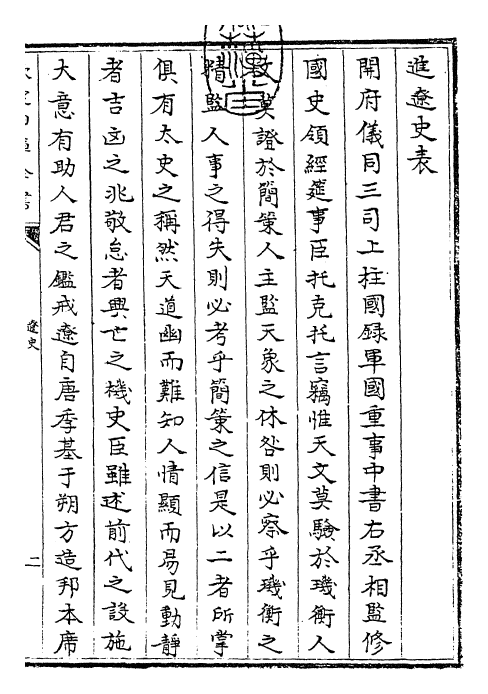 進遼史表
開府儀同三司上柱國録軍國重事中書右丞相監修
國史領經筵事臣托克托言竊惟天文莫驗於璣衡人
文莫證於簡策人主監天象之休咎則必察乎璣衡之
精監人事之得失則必考乎簡策之信是以二者所掌
俱有太史之稱然天道幽而難知人情顯而易見動靜
者吉凶之兆敬怠者興亡之機史臣雖述前代之設施
大意有助人君之鑑戒遼自唐季基于朔方造邦本席
遼史
二